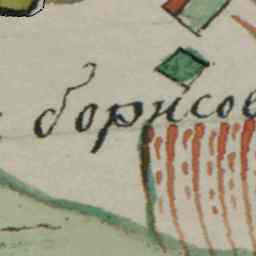 борисов